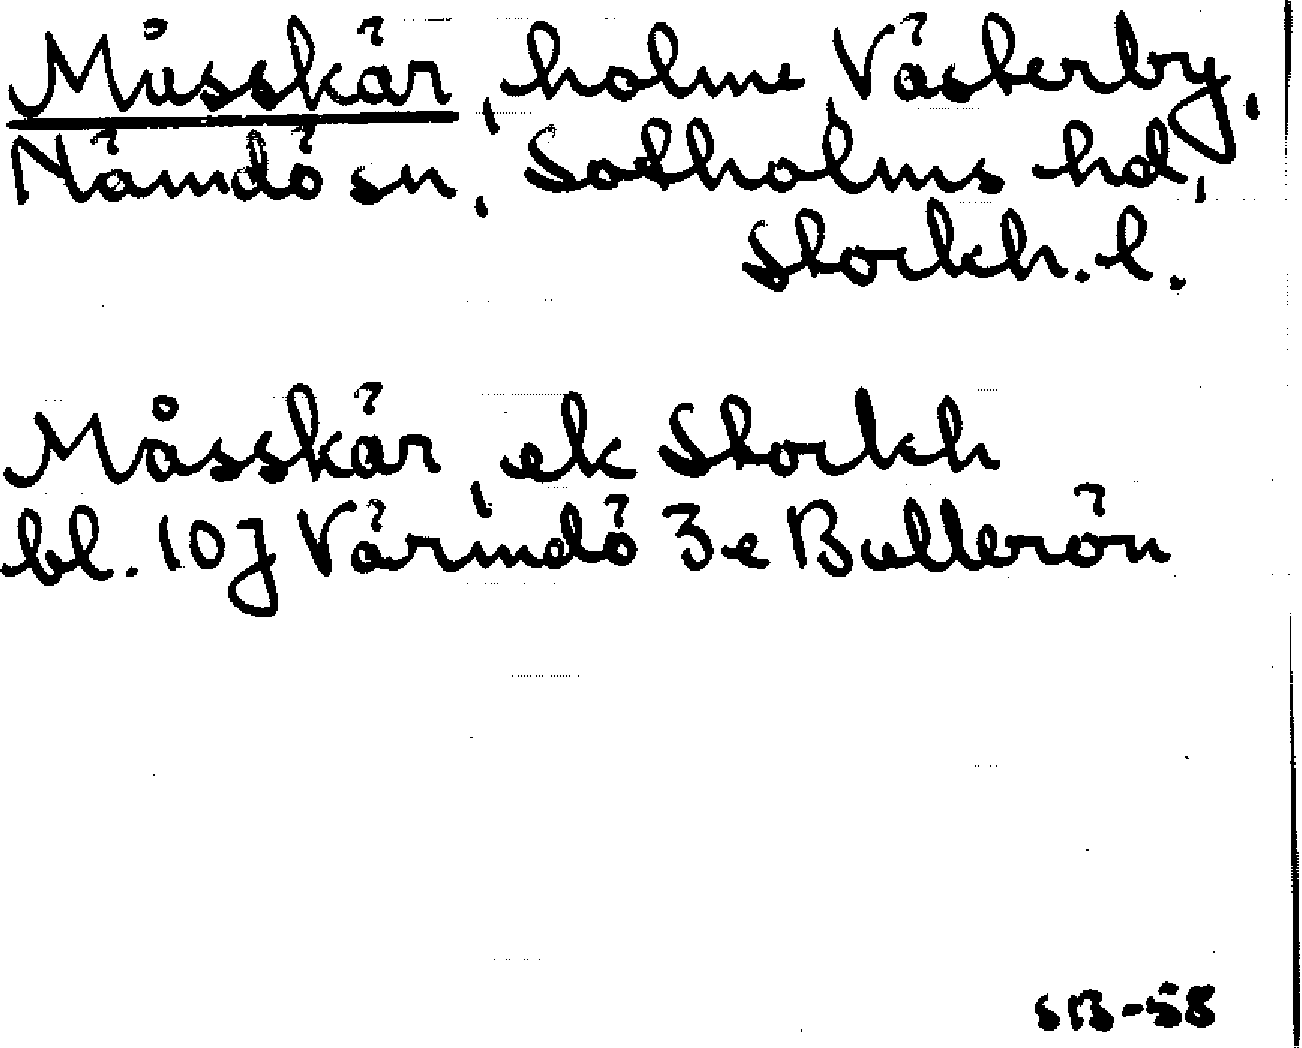 Måsskär, holme, Västerby,
Nämdö sn, Sotholms hd,
Stockh. l.
Måsskär, ek Stockh
bl. 10J Värmdö 3e Bullerön
SB-58